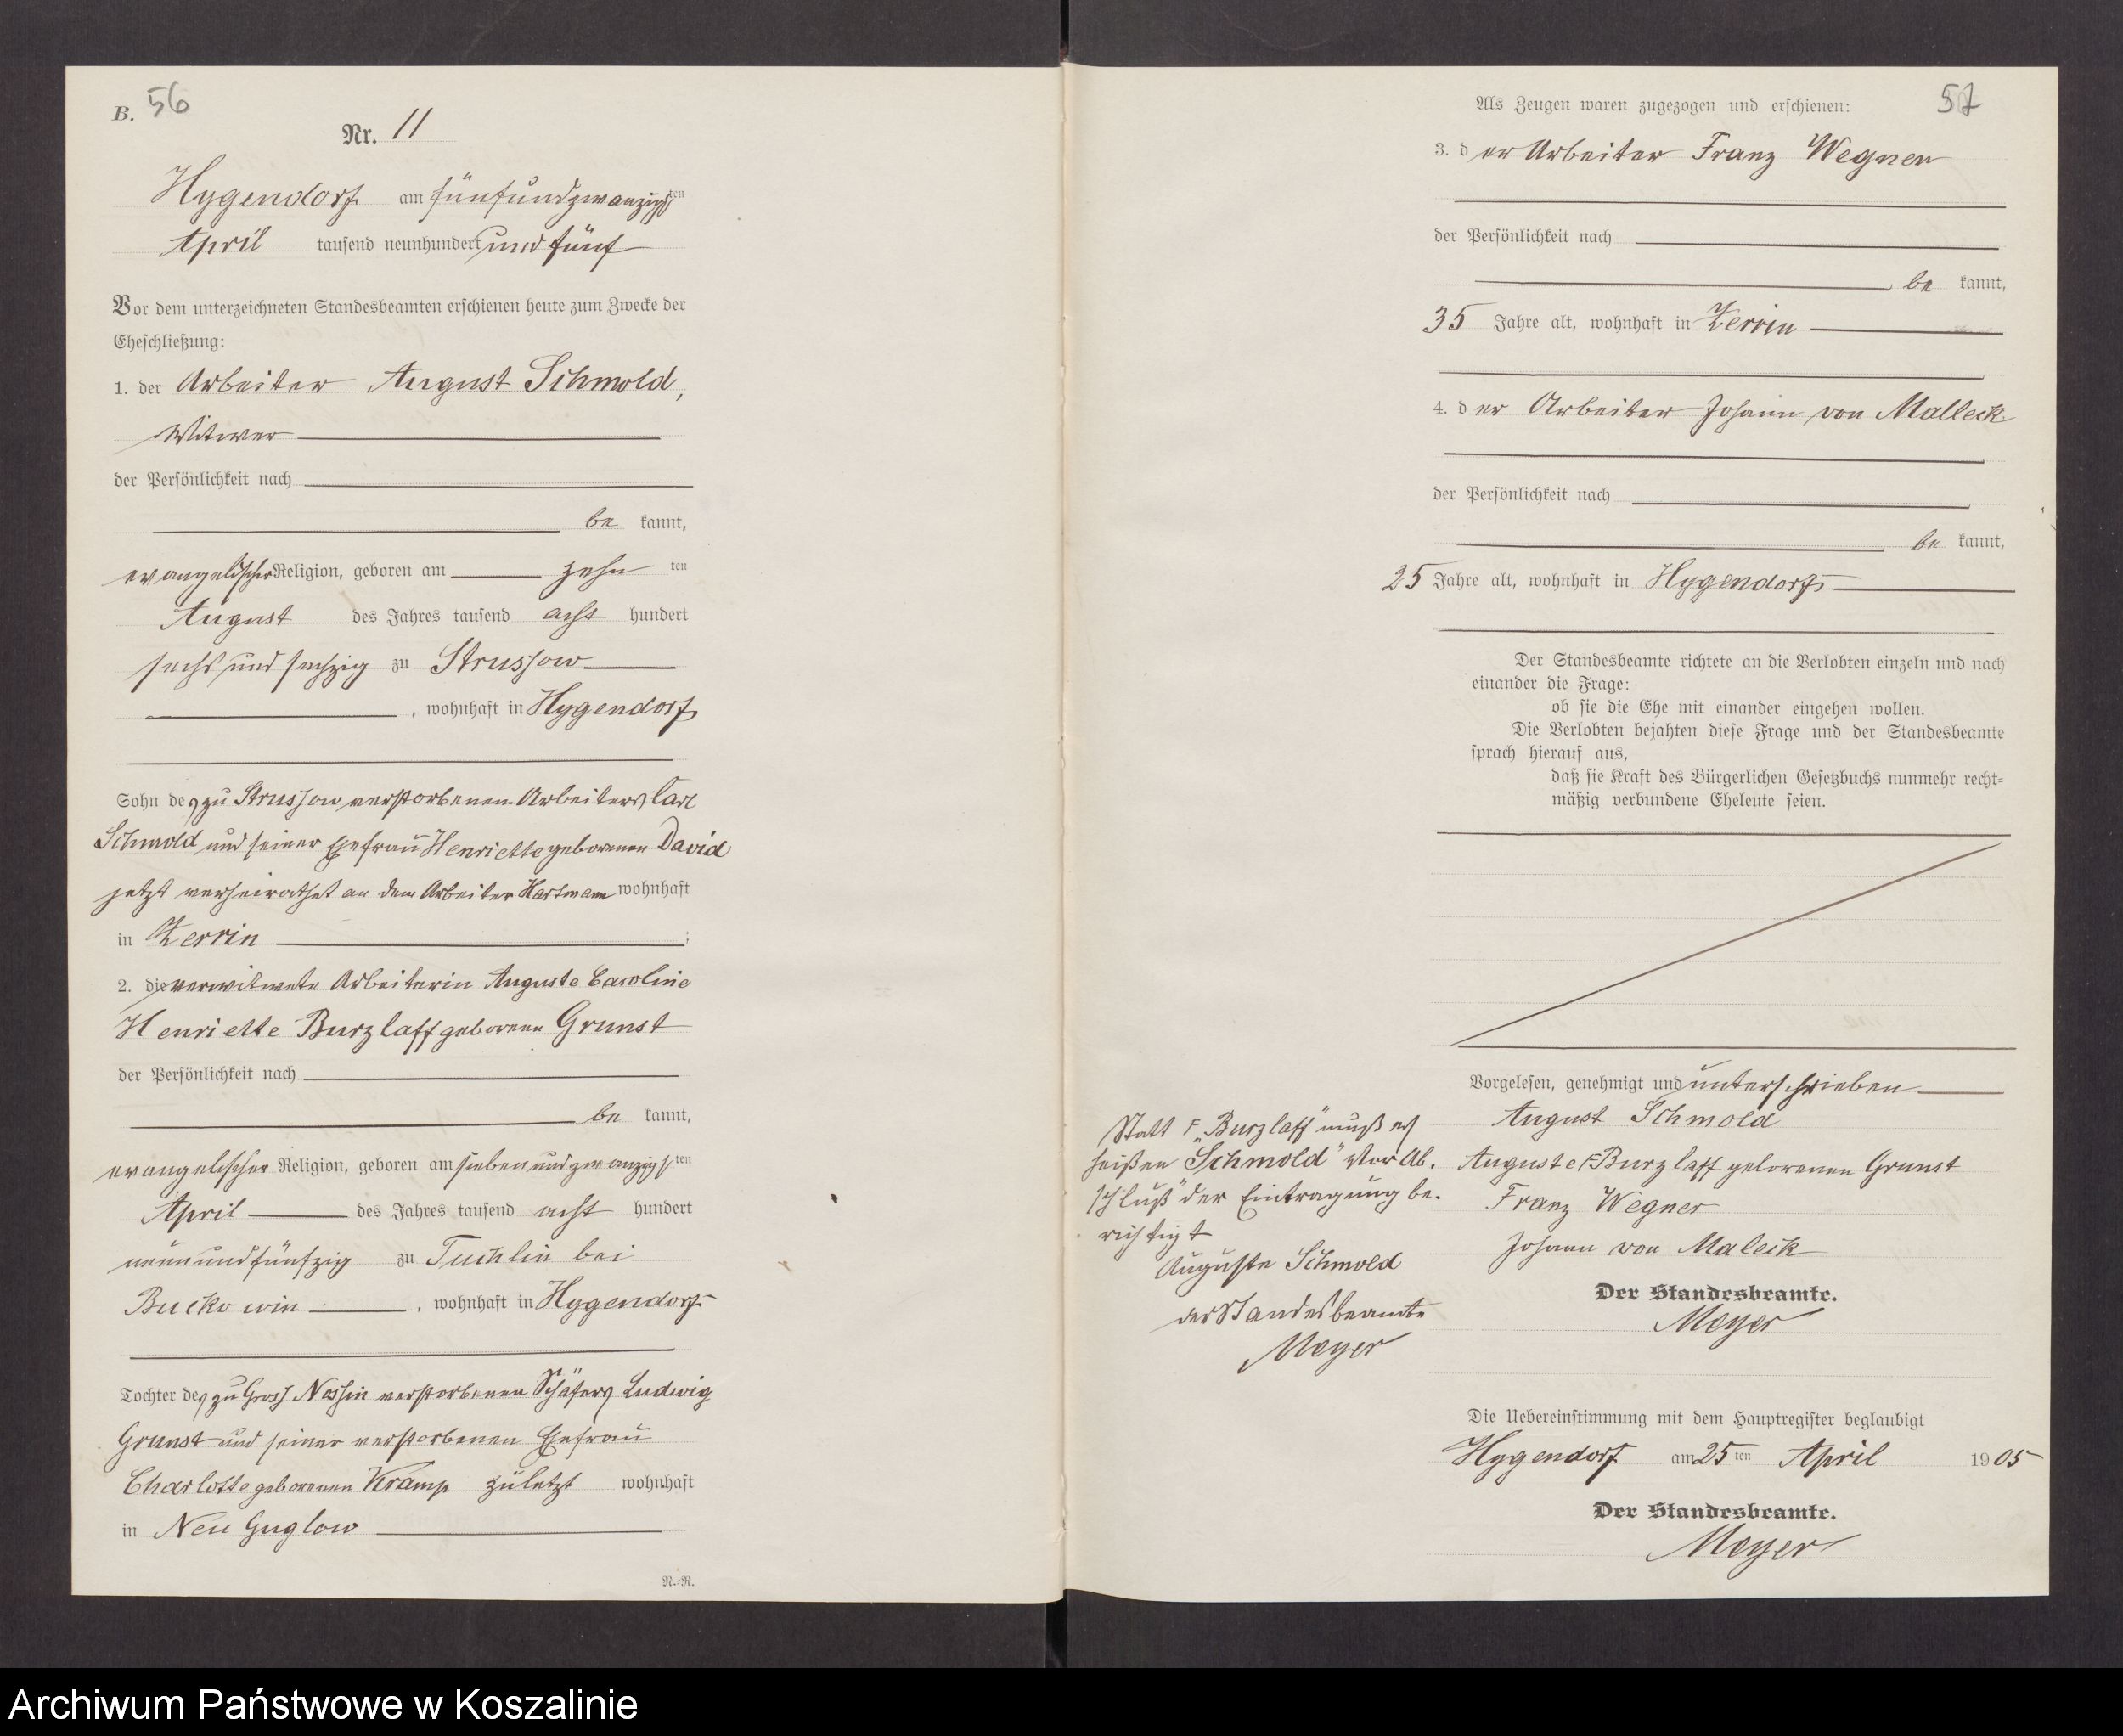 B. 56
Nr. 11
Hygendorf am fünfundzwanzigsten
April tausend neunhundert und fünf
Vor dem unterzeichneten Standesbeamten erschienen heute zum Zwecke der
Eheschließung:
1. der Arbeiter August Schmold,
Witwer
der Persönlichkeit nach
be kannt,
evangelischer Religion, geboren am zehn ten
August des Jahres tausend acht hundert
sechs und sechzig zu Strussow
, wohnhaft in Hygendorf
Sohn des zu Strussow verstorbenen Arbeiters Carl
Schmold und seiner Ehefrau Henriette geborenen David
jetzt verheirathet an dem Arbeiter Hartmann wohnhaft
in Zerrin ;
2. die verwitwete Arbeiterin Auguste Caroline
Henriette Burzlaff geborene Grunst
der Persönlichkeit nach
be kannt,
evangelischer Religion, geboren am siebenundzwanzigsten
April des Jahres tausend acht hundert
neunundfünfzig zu Tuchlin bei
Buckowin , wohnhaft in Hygendorf
Tochter des zu Gross Nossin verstorbenen Schäfers Ludwig
Grunst und seiner verstorbenen Ehefrau
Charlotte geborenen Kramp zuletzt wohnhaft
in Neu Guglow
N.=N.
57
Als Zeugen waren zugezogen und erschienen:
3. der Arbeiter Franz Wegner
der Persönlichkeit nach
be kannt,
35 Jahre alt, wohnhaft in Zerrin
4. der Arbeiter Johann von Malleck
der Persönlichkeit nach
be kannt,
25 Jahre alt, wohnhaft in Hygendorf
Der Standesbeamte richtete an die Verlobten einzeln und nach
einander die Frage:
ob sie die Ehe mit einander eingehen wollen.
Die Verlobten bejahten diese Frage und der Standesbeamte
sprach hierauf aus,
daß sie kraft des Bürgerlichen Gesetzbuchs nunmehr recht=
mäßig verbundene Eheleute seien.
Vorgelesen, genehmigt und unterschrieben
August Schmold
Auguste Burzlaff geborenen Grunst
Franz Wegner
Johann von Maleck
Der Standesbeamte.
Meyer
Statt F „Burzlaff" muß es
heißen „Schmold" Vor Ab.
schluß der Eintragung be.
richtigt
Auguste Schmold
der Standesbeamte
Meyer
Die Uebereinstimmung mit dem Hauptregister beglaubigt
Hygendorf am 25 ten April 1905
Der Standesbeamte.
Meyer
Archiwum Państwowe w Koszalinie